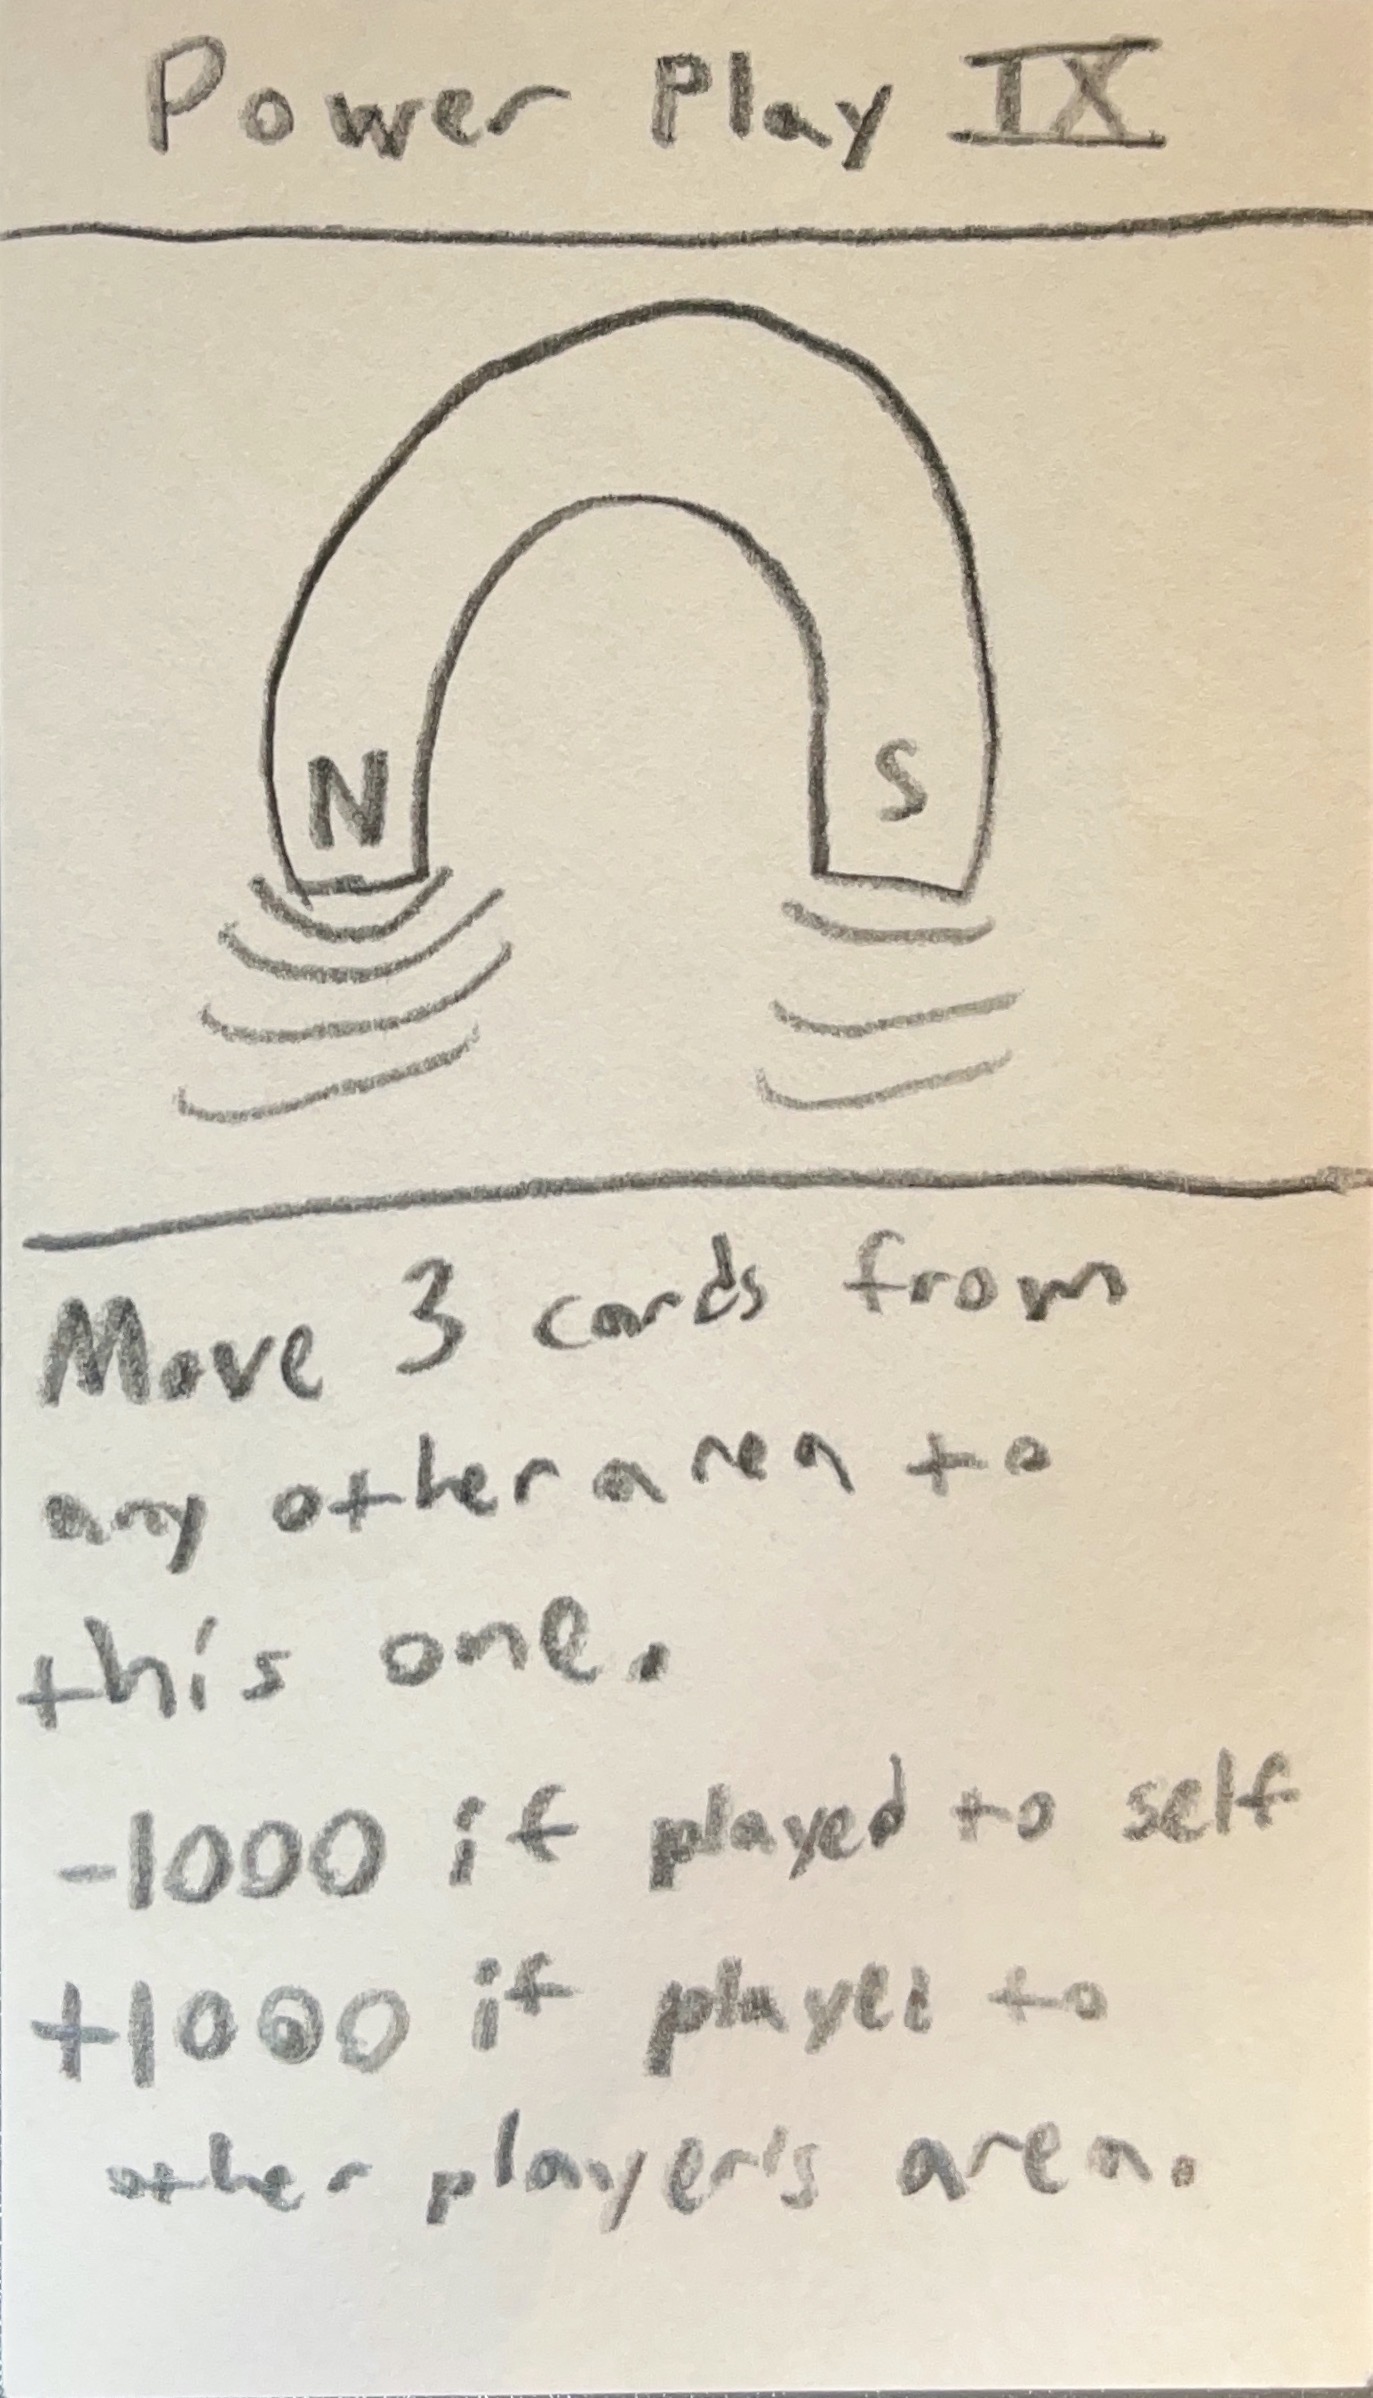 Power Play IX
N S
Move 3 cards from
any other area to
this one.
-1000 if played to self
+1000 if played to
other player's area.